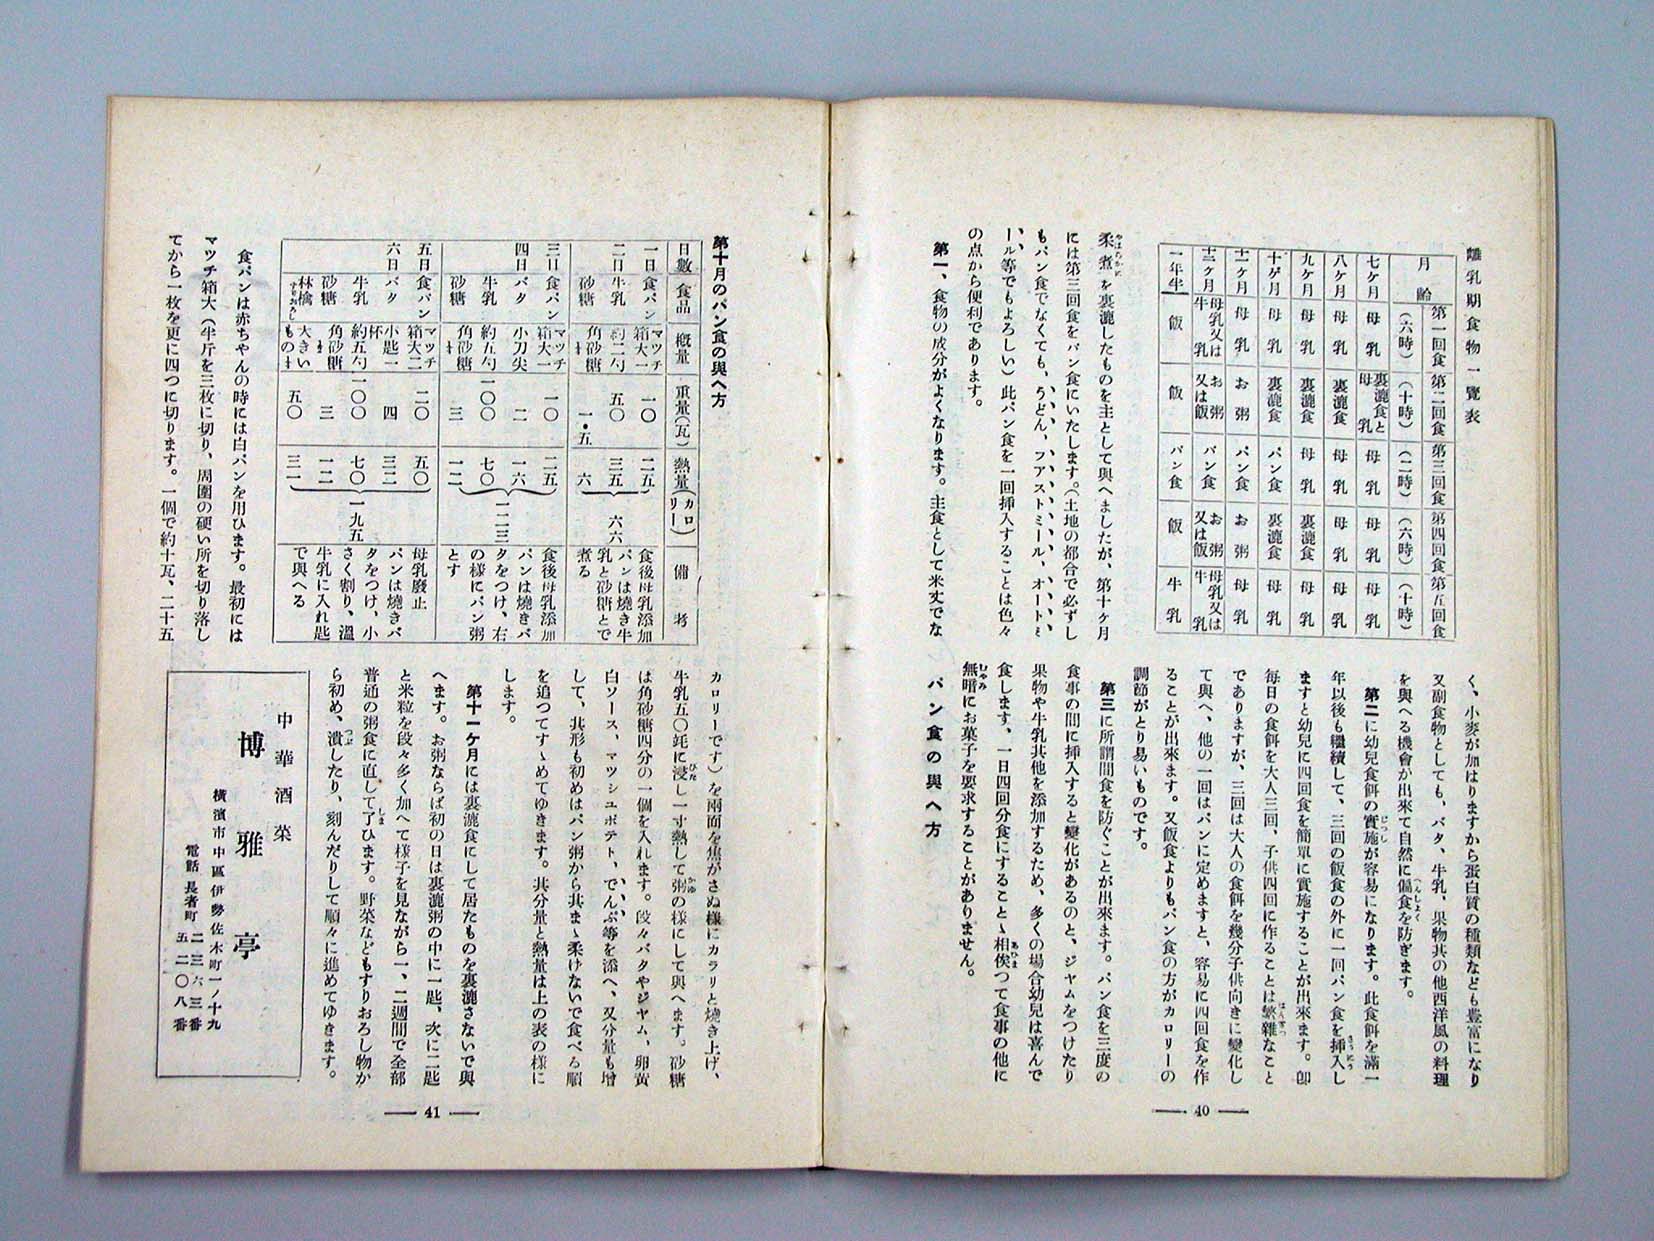 離乳期食物一覽表
月齡 第一回食(六時) 第二回食(十時) 第三回食(二時) 第四回食(六時) 第五回食(十時)
七ケ月 母乳 裏漉食と母乳 母乳 母乳 母乳
八ケ月 母乳 裏漉食 母乳 母乳 母乳
九ケ月 母乳 裏漉食 母乳 裏漉食 母乳
十ケ月 母乳 裏漉食 パン食 裏漉食 母乳
十一ケ月 母乳 お粥 パン食 お粥 母乳
十二ケ月 母乳又は牛乳 お粥又は飯 パン食 お粥又は飯 母乳又は牛乳
一年半 飯 飯 パン食 飯 牛乳
柔煮を裏漉したものを主として與へましたが、第十ケ月
には第三回食をパン食にいたします。(土地の都合で必ずし
もパン食でなくても、うどん、フアストミール、オートミ
ール等でもよろしい)此パン食を一回挿入することは色々
の点から便利であります。
第一、食物の成分がよくなります。主食として米丈でな
く、小麥が加はりますから蛋白質の種類なども豊富になり
又副食物としても、バタ、牛乳、果物其の他西洋風の料理
を與へる機會が出來て自然に偏食を防ぎます。
第二に幼兒食餌の實施が容易になります。此食餌を滿一
年以後も繼續して、三回の飯食の外に一回パン食を挿入し
ますと幼兒に四回食を簡單に實施することが出來ます。卽
毎日の食餌を大人三回、子供四回に作ることは繁雜なこと
でありますが、三回は大人の食餌を幾分子供向きに變化し
て與へ、他の一回はパンに定めますと、容易に四回食を作
ることが出來ます。又飯食よりもパン食の方がカロリーの
調節がとり易いものです。
第三に所謂間食を防ぐことが出來ます。パン食を三度の
食事の間に挿入すると變化があるのと、ジヤムをつけたり
果物や牛乳其他を添加するため、多くの場合幼兒は喜んで
食します、一日四回分食にすることゝ相俟つて食事の他に
無暗にお菓子を要求することがありません。
パン食の與へ方
40
第十月のパン食の與へ方
日數 食品 槪量 重量(瓦) 熱量(カロリー) 備考
一日 食パン マツチ箱大一 一〇 二五 食後母乳添加
二日 牛乳 約二勺 五〇 三五 六六 パンは燒き牛乳と砂糖とで煮る
砂糖 角砂糖 一・五 六
三日 食パン マツチ箱大一 一〇 二五 食後母乳添加
四日 バタ 小刀尖 二 一六 一二三 パンは燒きバタをつけ、右の樣にパン粥とす
牛乳 約五勺 一〇〇 七〇
砂糖 角砂糖 三 一二
五日 食パン マツチ箱大二 二〇 五〇 母乳廢止
六日 バタ 小匙一杯 四 三二 一九五 パンは燒きバタをつけ、小さく割り、溫牛乳に入れ匙で與へる
牛乳 約五勺 一〇〇 七〇
砂糖 角砂糖 三 一二
林檎すりおろし 大きいもの 五〇 三一
食パンは赤ちやんの時には白パンを用ひます。最初には
マツチ箱大(半斤を三枚に切り、周圍の硬い所を切り落し
てから一枚を更に四つに切ります。一個で約十瓦、二十五
カロリーです)を兩面を焦がさぬ樣にカラリと燒き上げ、
牛乳五〇竓に浸し一寸熱して粥の樣にして與へます。砂糖
は角砂糖四分の一個を入れます。段々バタやジヤム、卵黃
白ソース、マツシユポテト、でんぶ等を添へ、又分量も增
して、其形も初めはパン粥から其まゝ柔けないで食べる順
を追つてすゝめてゆきます。其分量と熱量は上の表の樣に
します。
第十一ケ月には裏漉食にして居たものを裏漉さないで與
へます。お粥ならば初の日は裏漉粥の中に一匙、次に二匙
と米粒を段々多く加へて樣子を見ながら一、二週間で全部
普通の粥食に直して了ひます。野菜などもすりおろし物か
ら初め、潰したり、刻んだりして順々に進めてゆきます。
中華酒菜
博雅亭
橫濱市中區伊勢佐木町一ノ十九
電話 長者町 二三六三番
五二〇八番
41